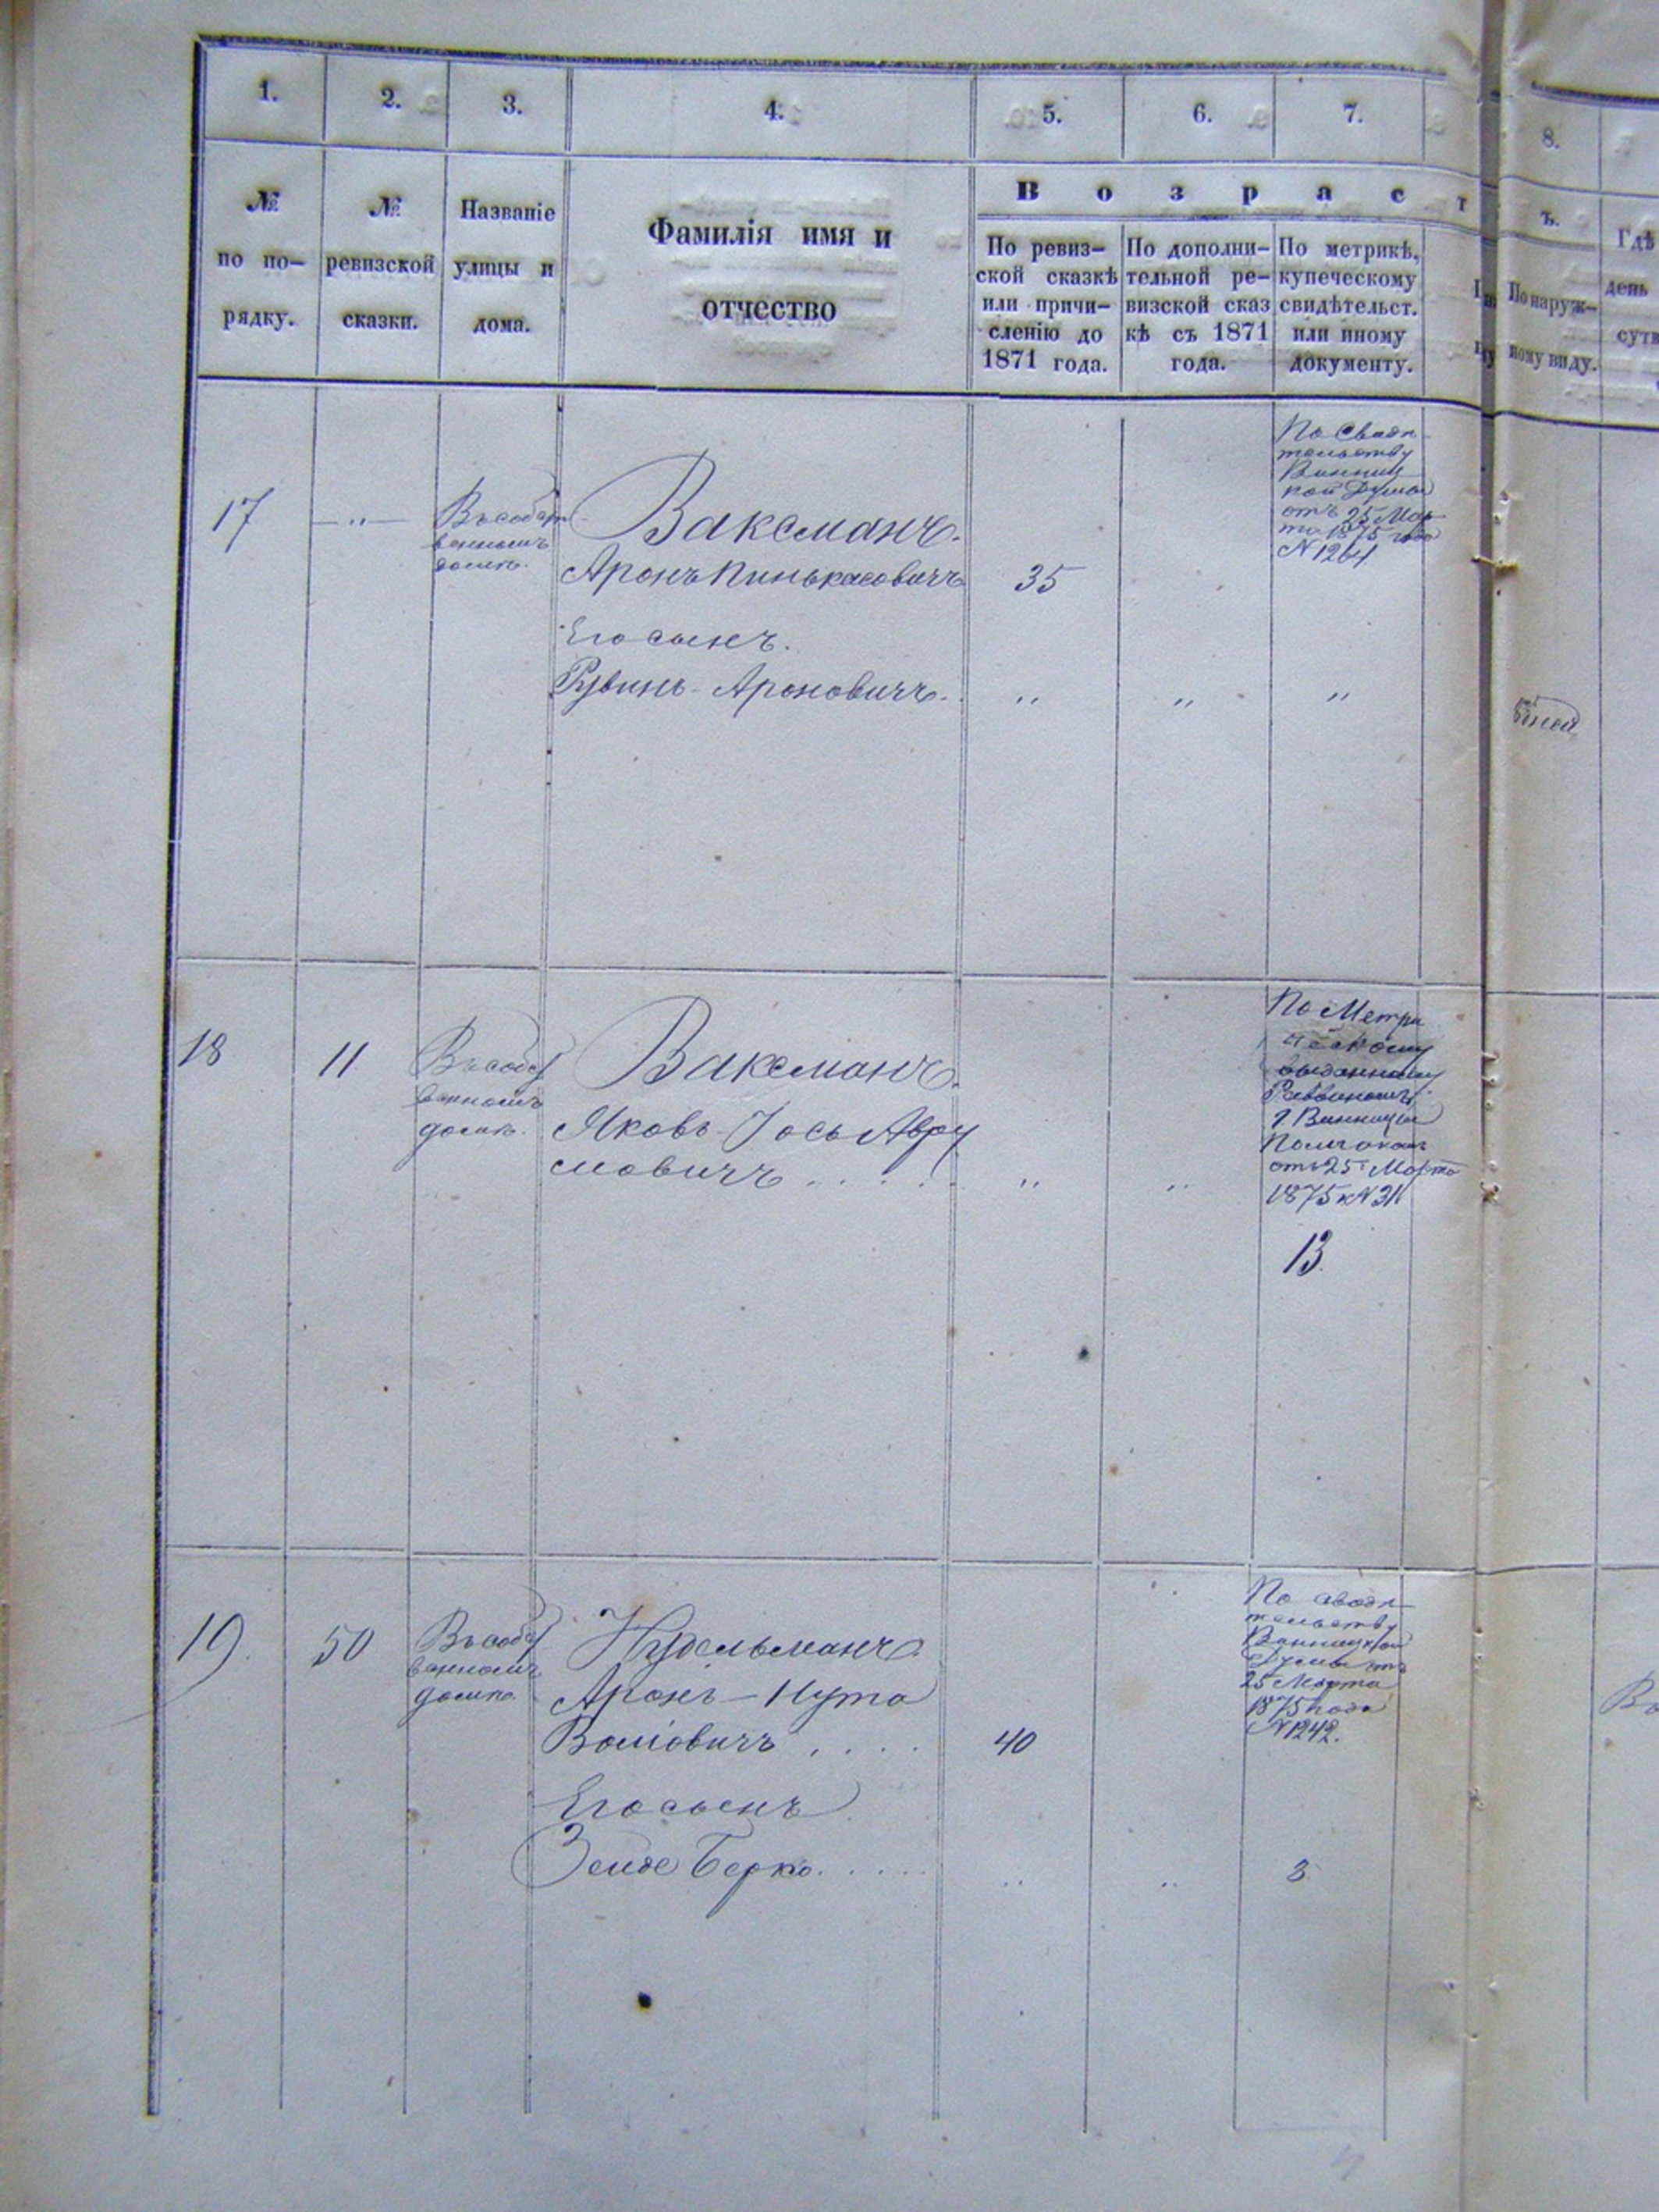 1. 2. 3. 4. 5. 6. 7. 8.
№ по по- рядку.
№ ревизской сказки.
Названіе улицы и дома.
Фамилія имя и
отчество
В о з р а с т ъ.
По ревиз-
ской сказкѣ
или причи-
сленію до
1871 года.
По дополни-
тельной ре-
визской сказ
кѣ съ 1871
года.
По метрикѣ,
купеческому
свидѣтельст.
или иному
документу.
По наруж-
ному виду.
Гдѣ
день
сутв
17
— " —
Въ собст
венномъ
домѣ.
Ваксманъ.
Аронъ Пинькасовичъ
35
Его сынъ.
Рувинъ - Ароновичъ.
" " "
По Свидѣ
тельству
Винниц
кой Думы
отъ 25 Мар
та 1875 года
№ 1261
18
11
Въ собст
венномъ
домѣ.
Ваксманъ.
Яковъ - Іось Авру
мовичъ . . . . .
" "
По Метри
ческому
выданному
Раввиномъ
г. Винницы
отъ 25 Марта
1875 №31
13.
19.
50
Въ собст
венномъ
домѣ.
Нудельманъ
Аронъ - Нута
Волиовичъ . . . .
40
Его сынъ
Зейде Берко. . . . .
" "
3
По свидѣ
тельству
Винницкой
Думы отъ
25 Марта
1875 года
№ 1242.